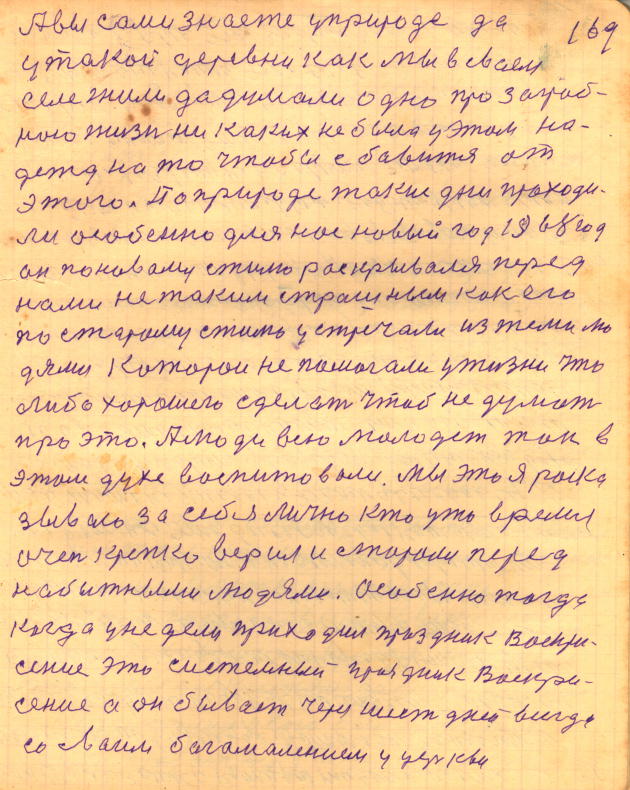 Авы сами знаете уприроде да 169
утакой деревни как мы всваем
селе жили да думали одно про загроб-
ною жизн ни каких не была уэтом на-
дежд на то чтобы сбавится от
этого. Поприроде такие дни проходи-
ли особенно для нас новый год 1968 год
он поновому стилю раскрывался перед
нами не таким страшным как его
по старому стилю устречали из теми лю
дями Которои не помогали ужизни что
либо хорошего сделат чтоб не думат
про это. Алюди всю молодеж так в
этом духе воспитовали. Мы это я раска
зываю за себя лично кто уто время
очен крепко верил и старом перед
набытными людями. Особенно тогда
когда унедели приходил праздник Воскри-
сение это системный праздник Воскри-
сение а он бывает через шест дней всегда
со сваим багамалением у церкви